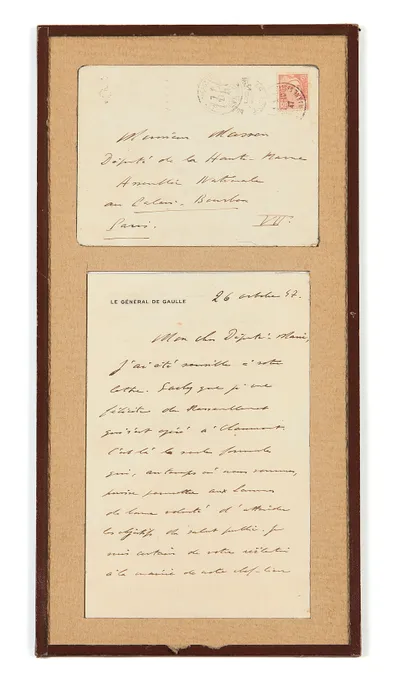 Monsieur Masson
Député de la Haute Marne
Assemblée Nationale
au Palais-Bourbon
Paris. VII.
LE GÉNÉRAL DE GAULLE
26 octobre 47.
Mon cher Député-Maire,
J'ai été sensible à votre
lettre. que je me
félicite du Rassemblement
opéré à Chaumont.
C'est là la seule formule
qui, au temps où nous sommes,
puisse permettre aux hommes
de bonne volonté d'atteindre
les objectifs de salut public. Je
suis certain de votre réélection
à la mairie de votre chef-lieu